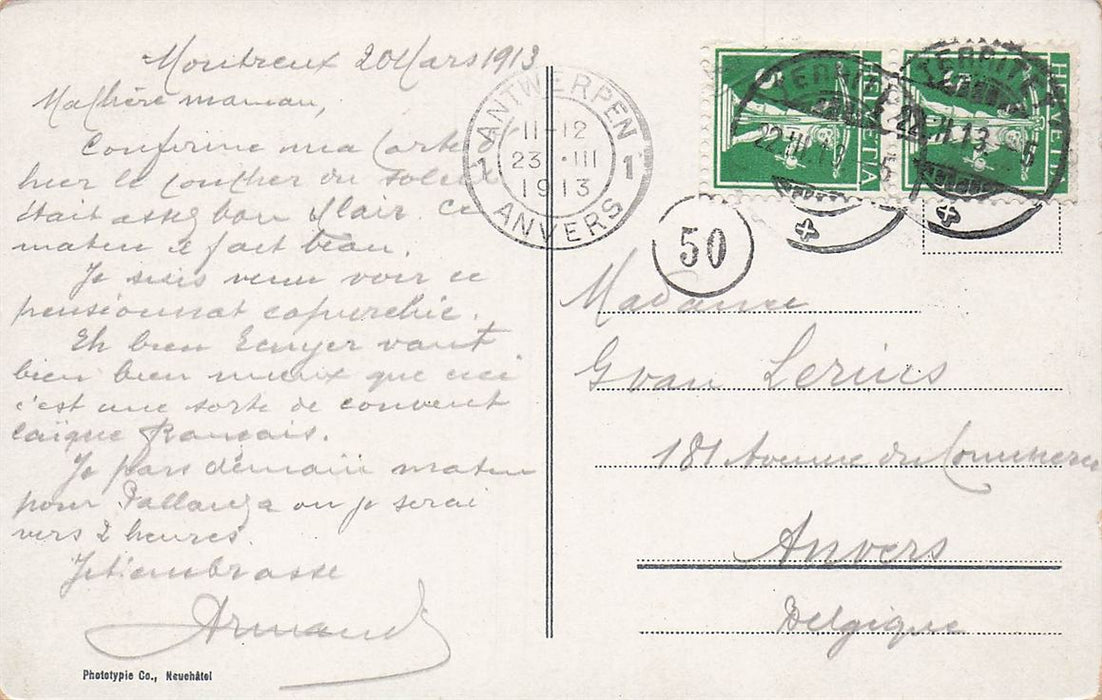 Montreux 20 Mars 1913
Ma Chère maman,
Confirme ma carte d'
hier le coucher du soleil
était assez bon & clair. Ce
matin il fait beau.
Je suis venu voir ce
pensionnat
Eh bien Ecuyer vaut
bien bien mieux que ceci
c'est une sorte de convent
laïque français.
Je pars demain matin
pour Pallanza ou je serai
vers 2 heures.
Je t'embrasse
Armand
Phototypie Co., Neuchâtel
ANTWERPEN
11-12
23 III
1913
1 1
ANVERS
50
HELVETIA
HELVETIA
TERRITET
22.III.13. 5
TERRITET
22.III.13. 5
Madame
Yvan Lerius
181 Avenue du Commerce
Anvers
Belgique